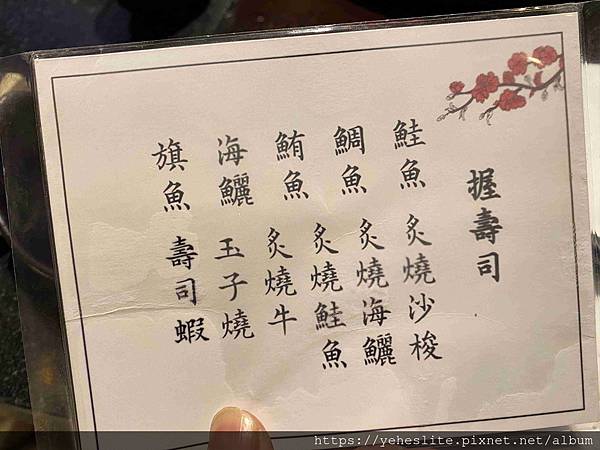 握壽司
鮭魚
鯛魚
鮪魚
海鱺
旗魚
炙燒沙梭
炙燒海鱺
炙燒鮭魚
炙燒牛
玉子燒
壽司蝦
https://yeheslite.pixnet.net/album